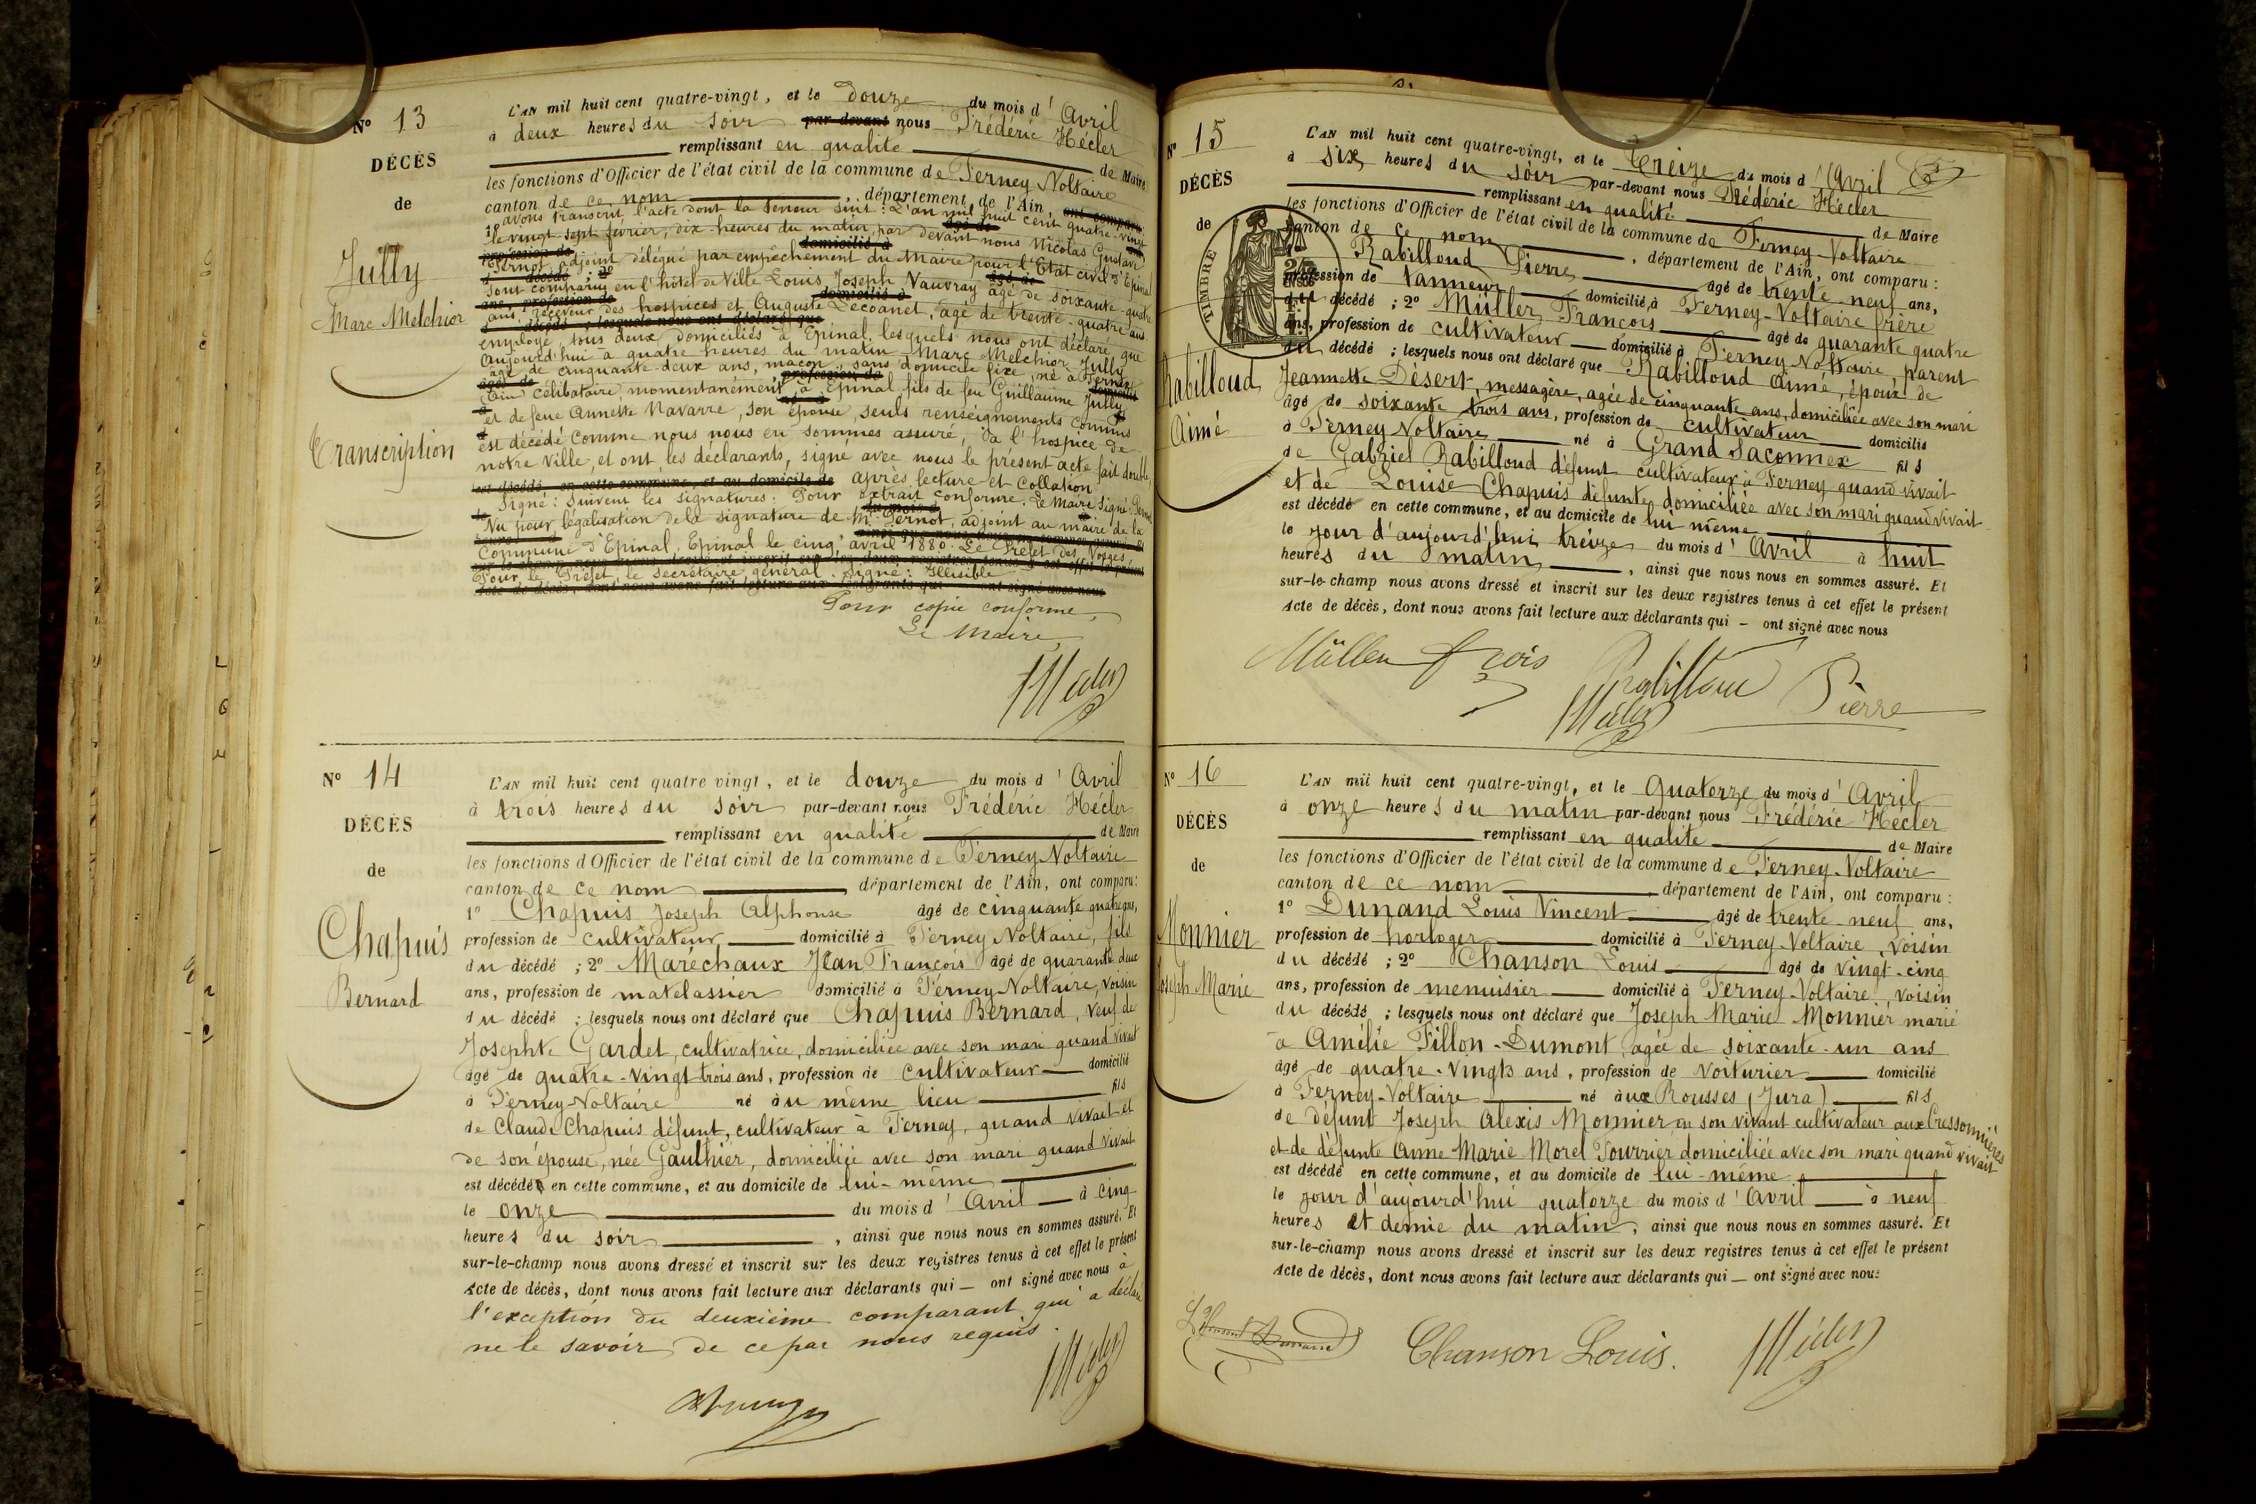 N° 13
DÉCÈS
de
Jully
Marc Melchior
Transcription
L'AN mil huit cent quatre-vingt, et le douze du mois d'Avril
à deux heures du soir par-devant nous Frédéric Hécler
remplissant en qualité de Maire
les fonctions d'Officier de l'état civil de la commune de Ferney Voltaire
canton de ce nom, département de l'Ain, ont comparu
avons transcrit l'acte dont la teneur suit : L'an mil huit cent quatre-vingt
le vingt sept février, dix heures du matin, par devant nous Nicolas Gustave
Pernot, adjoint délégué par empêchement du Maire pour l'Etat civil d'Epinal
sont comparus en l'hôtel de Ville Louis Joseph Vauvray âgé de soixante-quatre
ans, receveur des hospices et Auguste Lecoanet, âgé de trente-quatre ans
employé, tous deux domiciliés à Epinal, lesquels nous ont déclaré que
aujourd'hui à quatre heures du matin Marc Melchior Jully
âgé de cinquante deux ans, maçon, sans domicile fixe, né à Fernex
(Ain) célibataire, momentanément à Epinal, fils de feu Guillaume Jully
et de feue Annette Navarre, son épouse, seuls renseignements connus
est décédé comme nous nous en sommes assuré, à l'hospice de
notre ville, et ont les déclarants, signé avec nous le présent acte fait double,
après lecture et collation
Signé : Suivent les signatures. Pour extrait conforme. Le Maire signé : Pernot
Vu pour légalisation de la signature de Mr Pernot, adjoint au maire de la
Commune d'Epinal. Epinal le cinq avril 1880. Le Préfet des Vosges
Pour le Préfet, le secrétaire général. Signé : Illisible
Pour copie conforme,
Le Maire,
N° 14
DÉCÈS
de
Chapuis
Bernard
L'AN mil huit cent quatre vingt, et le douze du mois d'Avril
à trois heures du soir par-devant nous Frédéric Hécler
remplissant en qualité de Maire
les fonctions d'Officier de l'état civil de la commune de Ferney Voltaire
canton de ce nom département de l'Ain, ont comparu :
1° Chapuis Joseph Alphonse âgé de cinquante quatre ans,
profession de cultivateur domicilié à Ferney Voltaire, fils
du décédé ; 2° Maréchaux Jean François âgé de quarante deux
ans, profession de matelassier domicilié à Ferney Voltaire, voisin
du décédé ; lesquels nous ont déclaré que Chapuis Bernard, veuf de
Josephte Gardet, cultivatrice, domiciliée avec son mari quand vivait
âgé de quatre-vingt-trois ans, profession de cultivateur domicilié
à Ferney-Voltaire né au même lieu fils
de Claude Chapuis défunt, cultivateur à Ferney, quand vivait et
de son épouse, née Gaulthier, domiciliée avec son mari quand vivait
est décédé en cette commune, et au domicile de lui-même
le onze du mois d'Avril à cinq
heures du soir, ainsi que nous nous en sommes assuré. Et
sur-le-champ nous avons dressé et inscrit sur les deux registres tenus à cet effet le présent
Acte de décès, dont nous avons fait lecture aux déclarants qui — ont signé avec nous à
l'exception du deuxième comparant qui a déclaré
ne le savoir de ce par nous requis.
N° 15
DÉCÈS
de
TIMBRE
Rabilloud
Aimé
L'AN mil huit cent quatre-vingt, et le treize du mois d'Avril
à six heures du soir par-devant nous Frédéric Hécler
remplissant en qualité de Maire
les fonctions d'Officier de l'état civil de la commune de Ferney-Voltaire
canton de ce nom, département de l'Ain, ont comparu :
Rabilloud Pierre âgé de trente-neuf ans,
profession de tanneur domicilié à Ferney-Voltaire frère
du décédé ; 2° Müller François âgé de quarante quatre
ans, profession de cultivateur domicilié à Ferney Voltaire, parent
du décédé ; lesquels nous ont déclaré que Rabilloud Aimé, époux de
Jeannette Désert, messagère, agée de cinquante ans, domiciliée avec son mari
âgé de soixante trois ans, profession de cultivateur domicilié
à Ferney Voltaire né à Grand Saconnex fils
de Gabriel Rabilloud défunt cultivateur à Ferney quand vivait
et de Louise Chapuis défunte domiciliée avec son mari quand vivait
est décédé en cette commune, et au domicile de lui même
le jour d'aujourd'hui treize du mois d'Avril à huit
heures du matin, ainsi que nous nous en sommes assuré. Et
sur-le-champ nous avons dressé et inscrit sur les deux registres tenus à cet effet le présent
Acte de décès, dont nous avons fait lecture aux déclarants qui — ont signé avec nous
Müller fçois
Rabilloud Pierre
N° 16
DÉCÈS
de
Monnier
Joseph Marie
L'AN mil huit cent quatre-vingt, et le quatorze du mois d'Avril
à onze heures du matin par-devant nous Frédéric Hécler
remplissant en qualité de Maire
les fonctions d'Officier de l'état civil de la commune de Ferney-Voltaire
canton de ce nom département de l'Ain, ont comparu :
1° Dunand Louis Vincent âgé de trente-neuf ans,
profession de horloger domicilié à Ferney-Voltaire, voisin
du décédé ; 2° Chanson Louis âgé de vingt-cinq
ans, profession de menuisier domicilié à Ferney-Voltaire, voisin
du décédé ; lesquels nous ont déclaré que Joseph Marie Monnier marié
à Amélie Fillon-Dumont, agée de soixante-un ans
âgé de quatre-vingts ans, profession de voiturier domicilié
à Ferney-Voltaire né aux Rousses (Jura) fils
de défunt Joseph Alexis Monnier en son vivant cultivateur aux Cressonnières
et de défunte Anne Marie Morel Fourrier domiciliée avec son mari quand vivait
est décédé en cette commune, et au domicile de lui-même
le jour d'aujourd'hui quatorze du mois d'Avril à neuf
heures et demie du matin, ainsi que nous nous en sommes assuré. Et
sur-le-champ nous avons dressé et inscrit sur les deux registres tenus à cet effet le présent
Acte de décès, dont nous avons fait lecture aux déclarants qui — ont signé avec nous
Chanson Louis.